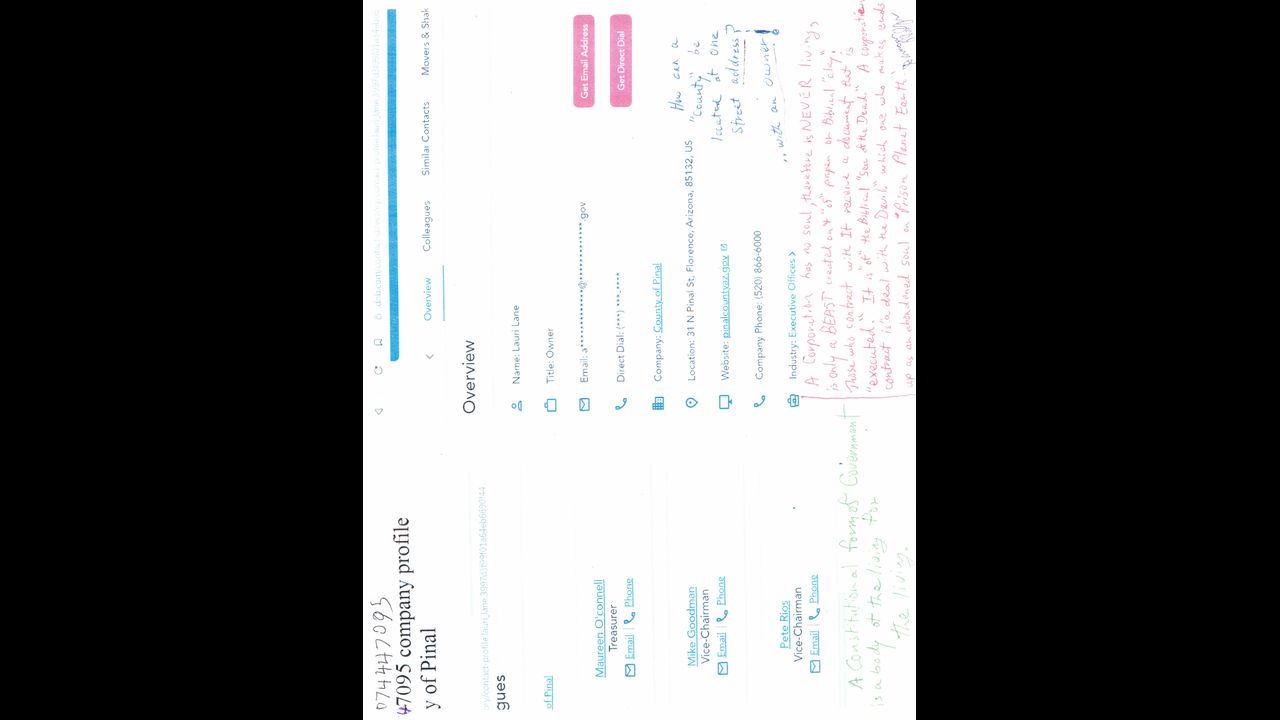 074447095
47095 company profile
y of Pinal
gues
of Pinal
Maureen O'connell
Treasurer
Email | Phone
Mike Goodman
Vice-Chairman
Email | Phone
Pete Rios
Vice-Chairman
Email | Phone
A Constitutional form of Government
is a body of the living for
the living.
< Overview Colleagues Similar Contacts Movers & Shak
Overview
Name: Lauri Lane
Title: Owner
Email: a**************@**************.gov
Get Email Address
Direct Dial: (***) ***-****
Get Direct Dial
Company: County of Pinal
Location: 31 N Pinal St, Florence, Arizona, 85132, US
Website: pinalcountyaz.gov
Company Phone: (520) 866-6000
Industry: Executive Offices >
How can a
"County" be
located at one
street address?
"with an owner"
A Corporation has no soul, therefore is NEVER living,
is only a BEAST created on & "of" paper or Biblical "clay".
Those who contract with It receive a document that is
"executed." It is "of" the Biblical "Sea of the Dead." A corporation
contract is "a deal with the Devil" which one who makes ends
up as an abandoned soul on "Prison Planet Earth".